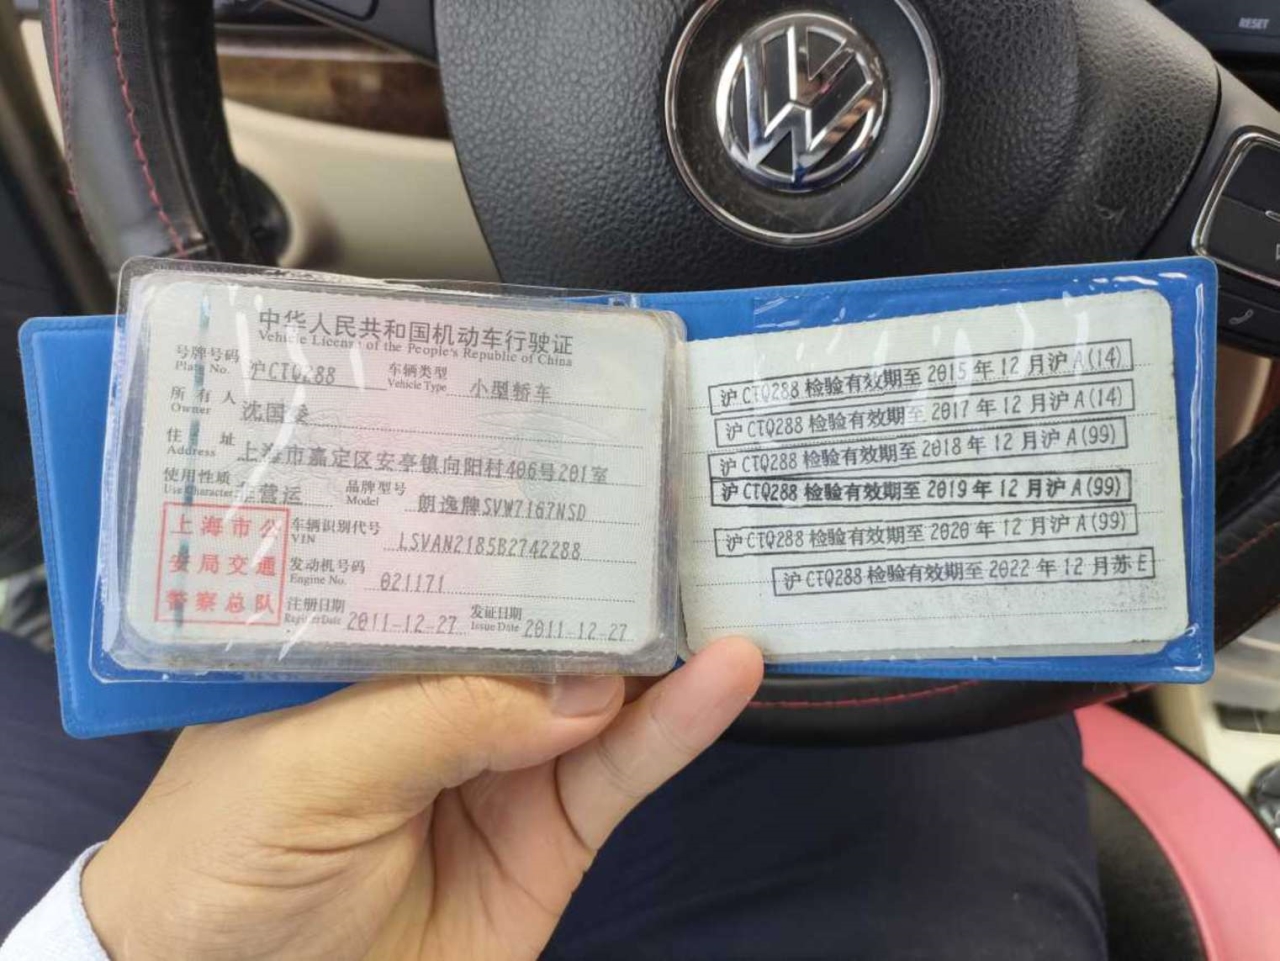 RESET
中华人民共和国机动车行驶证
Vehicle License of the People's Republic of China
号牌号码 沪CTQ288 车辆类型 小型轿车
Plate No. Vehicle Type
所有人 沈国
Owner
住址 上海市嘉定区安亭镇向阳村406号201室
Address
使用性质 非营运 品牌型号 朗逸牌SVW7167NSD
Use Character Model
车辆识别代号 LSVAN2185B2742288
VIN
发动机号码 021171
Engine No.
注册日期 2011-12-27 发证日期 2011-12-27
Register Date Issue Date
上海市公
安局交通
警察总队
沪CTQ288 检验有效期至 2015 年 12 月沪 A(14)
沪CTQ288 检验有效期至 2017 年 12 月沪 A(14)
沪CTQ288 检验有效期至 2018 年 12 月沪 A(99)
沪CTQ288 检验有效期至 2019 年 12 月沪 A(99)
沪CTQ288 检验有效期至 2020 年 12 月沪 A(99)
沪CTQ288 检验有效期至 2022 年 12 月苏 E